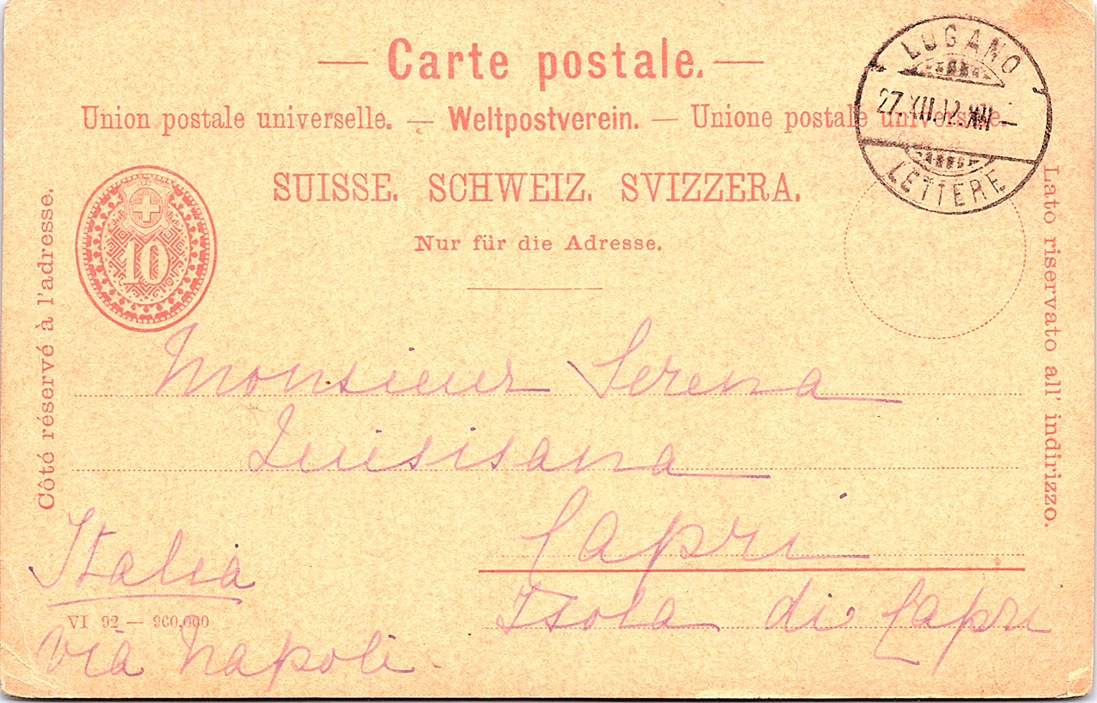 — Carte postale. —
Union postale universelle. — Weltpostverein. — Unione postale universale.
SUISSE. SCHWEIZ. SVIZZERA.
Nur für die Adresse.
LUGANO
27.XII.12.XII —
LETTERE
10
Côté réservé à l'adresse.
Lato riservato all' indirizzo.
Monsieur Serena
Quisisana
Capri
Isola di Capri
Italia
VI 92 — 960,000
via Napoli.